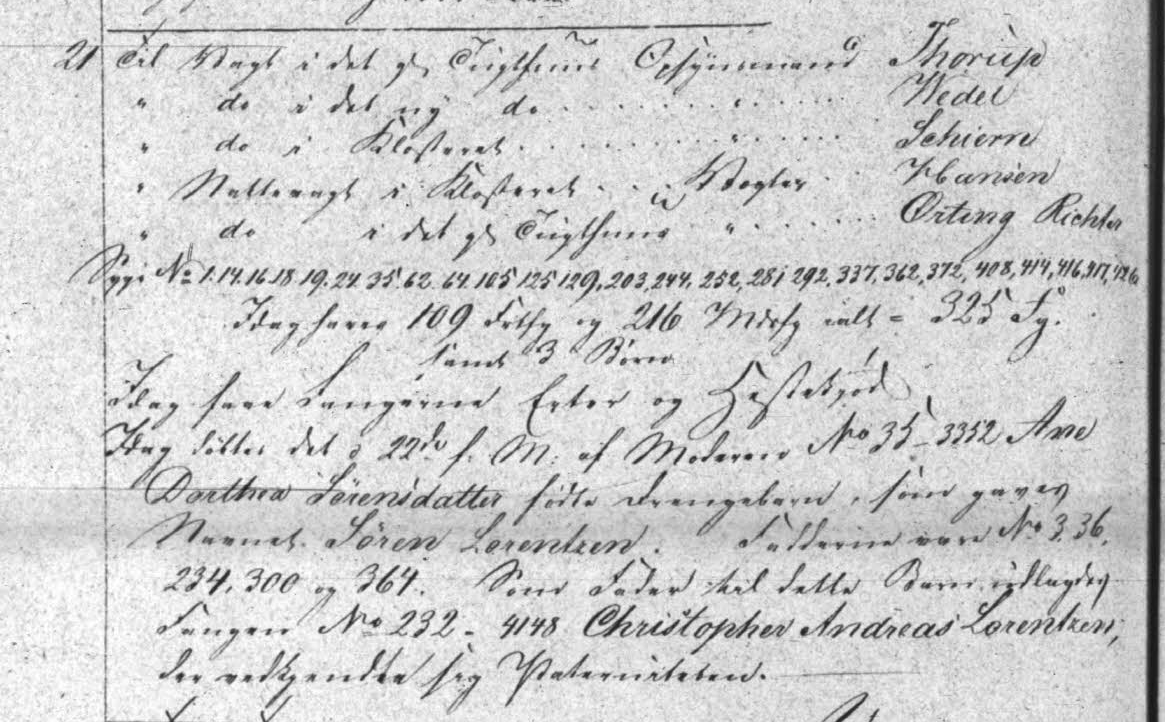 21 Til Vagt i det gl Tugthuus Opsynsmand Thorup
" do i det ny do . . . . . " . . . . . Wedel
" do i Klosteret . . . . . " . . . . . Schiern
" Nattevagt i Klosteret . . . Vogter . . Hansen
" do i det gl Tugthuus " . . . . . Örting Richter
Syge No 1.14.16.18.19.24.35.62.64.105.125.129.203.244.252.281.292.337.362.372.408.414.416.417.426
Idag haves 109 Frtfg og 216 Mdsfg ialt = 325 Fg.
samt 3 Börn
Idag have Fangerne Erter og Hestekjöd
Idag döbtes det d 22de f. M. af Moderen No 35 - 3352 Ane
Dorthea Sörensdatter födte Drengebarn, som gaves
Navnet Sören Lorentzen. Fadderne vare No 3.36.
234, 300 og 364. Som Fader til dette Barn udlagdes
Fangen No 232 - 4148 Christopher Andreas Lorentzen,
der vedkjendte sig Paterniteten.